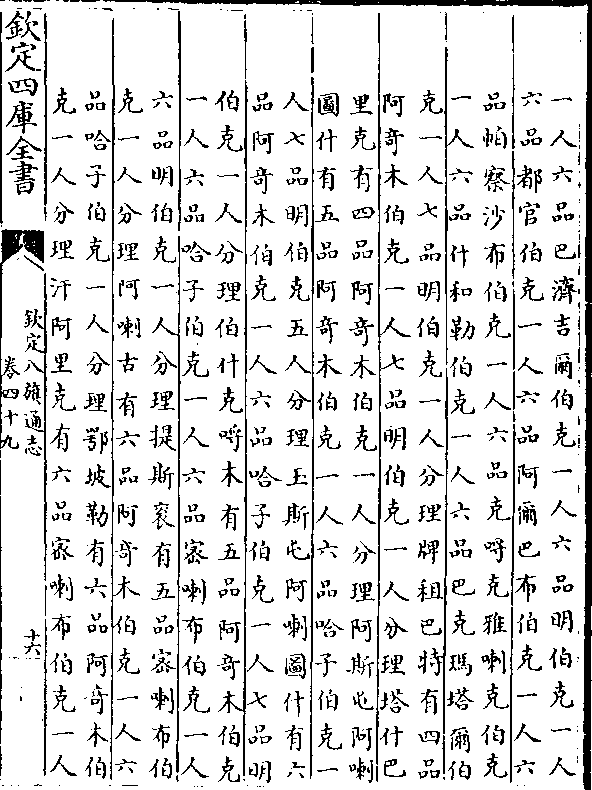 一人六品巴濟吉爾伯克一人六品明伯克一人
六品都官伯克一人六品阿爾巴布伯克一人六
品帕察沙布伯克一人六品克哷克雅喇克伯克
一人六品什和勒伯克一人六品巴克瑪塔爾伯
克一人七品明伯克一人分理牌租巴特有四品
阿竒木伯克一人七品明伯克一人分理塔什巴
里克有四品阿竒木伯克一人分理阿斯屯阿喇
圖什有五品阿竒木伯克一人六品哈子伯克一
人七品明伯克五人分理玉斯屯阿喇圖什有六
品阿竒木伯克一人六品哈子伯克一人七品明
伯克一人分理伯什克哷木有五品阿竒木伯克
一人六品哈子伯克一人六品宻喇布伯克一人
六品明伯克一人分理提斯衮有五品宻喇布伯
克一人分理阿喇古有六品阿竒木伯克一人六
品哈子伯克一人分理鄂坡勒有六品阿竒木伯
克一人分理汗阿里克有六品宻喇布伯克一人
欽定四庫全書
欽定八旗通志
卷四十九
十六